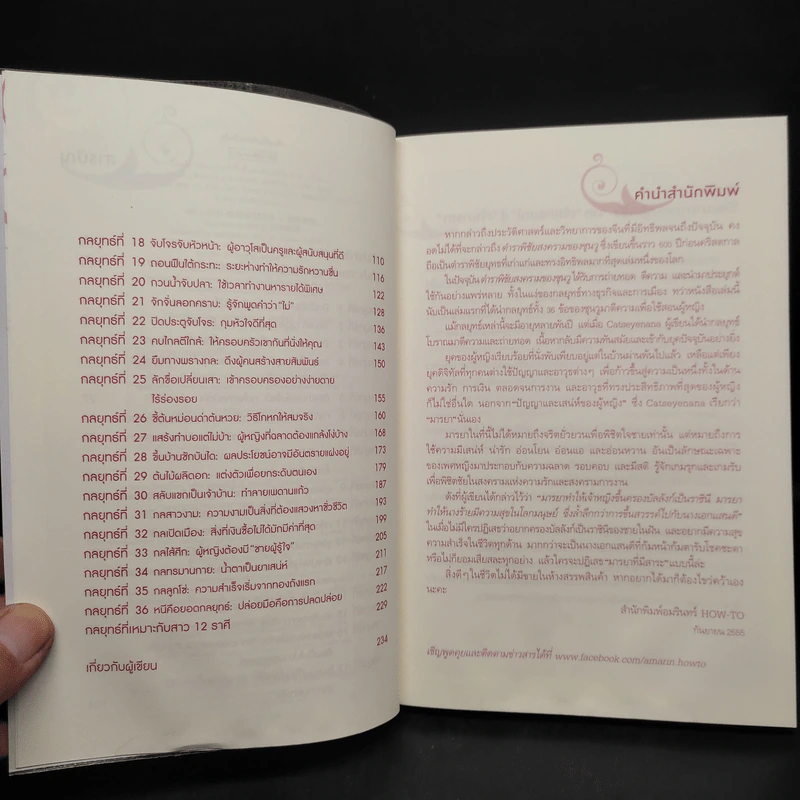 กลยุทธ์ที่ 18 จับโจรจับหัวหน้า: ผู้อาวุโสเป็นครูและผู้สนับสนุนที่ดี 110
กลยุทธ์ที่ 19 ถอนฟืนใต้กระทะ: ระยะห่างทำให้ความรักหวานชื่น 116
กลยุทธ์ที่ 20 กวนน้ำจับปลา: ใช้เวลาทำงานหารายได้พิเศษ 122
กลยุทธ์ที่ 21 จักจั่นลอกคราบ: รู้จักพูดคำว่า "ไม่" 128
กลยุทธ์ที่ 22 ปิดประตูจับโจร: กุมหัวใจดีที่สุด 136
กลยุทธ์ที่ 23 คบไกลตีใกล้: ให้ครอบครัวเขากันที่นั่งให้คุณ 143
กลยุทธ์ที่ 24 ยืมทางพรางกล: ดึงผู้คนสร้างสายสัมพันธ์ 150
กลยุทธ์ที่ 25 ลักขื่อเปลี่ยนเสา: เข้าครอบครองอย่างง่ายดาย
ไร้ร่องรอย 155
กลยุทธ์ที่ 26 ชี้ต้นหม่อนด่าต้นหวย: วิธีโกหกให้สมจริง 160
กลยุทธ์ที่ 27 แสร้งทำบอแต่ไม่บ้า: ผู้หญิงที่ฉลาดต้องแกล้งโง่บ้าง 168
กลยุทธ์ที่ 28 ขึ้นบ้านชักบันได: ผลประโยชน์อาจมีอันตรายแฝงอยู่ 173
กลยุทธ์ที่ 29 ต้นไม้ผลิดอก: แต่งตัวเพื่อยกระดับตนเอง 179
กลยุทธ์ที่ 30 สลับแขกเป็นเจ้าบ้าน: ทำลายเพดานแก้ว 187
กลยุทธ์ที่ 31 กลสาวงาม: ความงามเป็นสิ่งที่ต้องแสวงหาชั่วชีวิต 193
กลยุทธ์ที่ 32 กลเปิดเมือง: สิ่งที่เงินซื้อไม่ได้มักมีค่าที่สุด 199
กลยุทธ์ที่ 33 กลไส้ศึก: ผู้หญิงต้องมี "ชายผู้รู้ใจ" 205
กลยุทธ์ที่ 34 กลทรมานกาย: น้ำตาเป็นยาเสน่ห์ 211
กลยุทธ์ที่ 35 กลลูกโซ่: ความสำเร็จเริ่มจากทองถังแรก 217
กลยุทธ์ที่ 36 หนีคือยอดกลยุทธ์: ปล่อยมือคือการปลดปล่อย 222
กลยุทธ์ที่เหมาะกับสาว 12 ราศี 229
เกี่ยวกับผู้เขียน 234
คำนำสำนักพิมพ์
หากกล่าวถึงประวัติศาสตร์และวิทยาการของจีนที่มีอิทธิพลจนถึงปัจจุบัน คง
อดไม่ได้ที่จะกล่าวถึง ตำราพิชัยสงครามของซุนวู ซึ่งเขียนขึ้นราว 600 ปีก่อนคริสตกาล
ถือเป็นตำราพิชัยยุทธที่เก่าแก่และทรงอิทธิพลมากที่สุดเล่มหนึ่งของโลก
ในปัจจุบัน ตำราพิชัยสงครามของซุนวู ได้รับการถ่ายทอด ตีความ และนำมาประยุกต์
ใช้กันอย่างแพร่หลาย ทั้งในแง่ของกลยุทธ์ทางธุรกิจและการเมือง ทว่าหนังสือเล่มนี้
นับเป็นเล่มแรกที่ได้นำกลยุทธ์ทั้ง 36 ข้อของซุนวูมาตีความเพื่อใช้สอนผู้หญิง
แม้กลยุทธ์เหล่านี้จะมีอายุหลายพันปี แต่เมื่อ Catseyenana ผู้เขียนได้นำกลยุทธ์
โบราณมาตีความและถ่ายทอด เนื้อหากลับมีความทันสมัยและเข้ากับยุคปัจจุบันอย่างยิ่ง
ยุคของผู้หญิงเรียบร้อยที่นั่งพับเพียบอยู่แต่ในบ้านผ่านพ้นไปแล้ว เหลือแต่เพียง
ยุคดิจิทัลที่ทุกคนต่างใช้ปัญญาและอาวุธต่างๆ เพื่อก้าวขึ้นสู่ความเป็นหนึ่งทั้งในด้าน
ความรัก การเงิน ตลอดจนการงาน และอาวุธที่ทรงประสิทธิภาพที่สุดของผู้หญิง
ก็ไม่ใช่อื่นใด นอกจาก "ปัญญาและเสน่ห์ของผู้หญิง" ซึ่ง Catseyenana เรียกว่า
"มารยา" นั่นเอง
มารยาในที่นี้ไม่ได้หมายถึงจริตยั่วยวนเพื่อพิชิตใจชายเท่านั้น แต่หมายถึงการ
ใช้ความมีเสน่ห์ น่ารัก อ่อนโยน อ่อนแอ และอ่อนหวาน อันเป็นลักษณะเฉพาะ
ของเพศหญิงมาประกอบกับความฉลาด รอบคอบ และมีสติ รู้จักเกมรุกและเกมรับ
เพื่อพิชิตชัยในสงครามแห่งความรักและสงครามการงาน
ดังที่ผู้เขียนได้กล่าวไว้ว่า "มารยาทำให้เจ้าหญิงขึ้นครองบัลลังก์เป็นราชินี มารยา
ทำให้นางร้ายมีความสุขในโลกมนุษย์ ซึ่งล้ำลึกกว่าการขึ้นสวรรค์ไปกับนางเอกแสนดี"
ในเมื่อไม่มีใครปฏิเสธว่าอยากครองบัลลังก์เป็นราชินีของชายในฝัน และอยากมีความสุข
ความสำเร็จในชีวิตทุกด้าน มากกว่าจะเป็นนางเอกแสนดีที่ก้มหน้าก้มตารับโชคชะตา
หรือไม่ก็ยอมเสียสละทุกอย่าง แล้วใครจะปฏิเสธ "มารยาที่มีสาระ" แบบนี้ล่ะ
สิ่งดีๆ ในชีวิตไม่ได้มีขายในห้างสรรพสินค้า หากอยากได้มาก็ต้องไขว่คว้าเอง
นะคะ
สำนักพิมพ์อมรินทร์ HOW-TO
กันยายน 2555
เชิญพูดคุยและติดตามข่าวสารได้ที่ www.facebook.com/amarin.howto